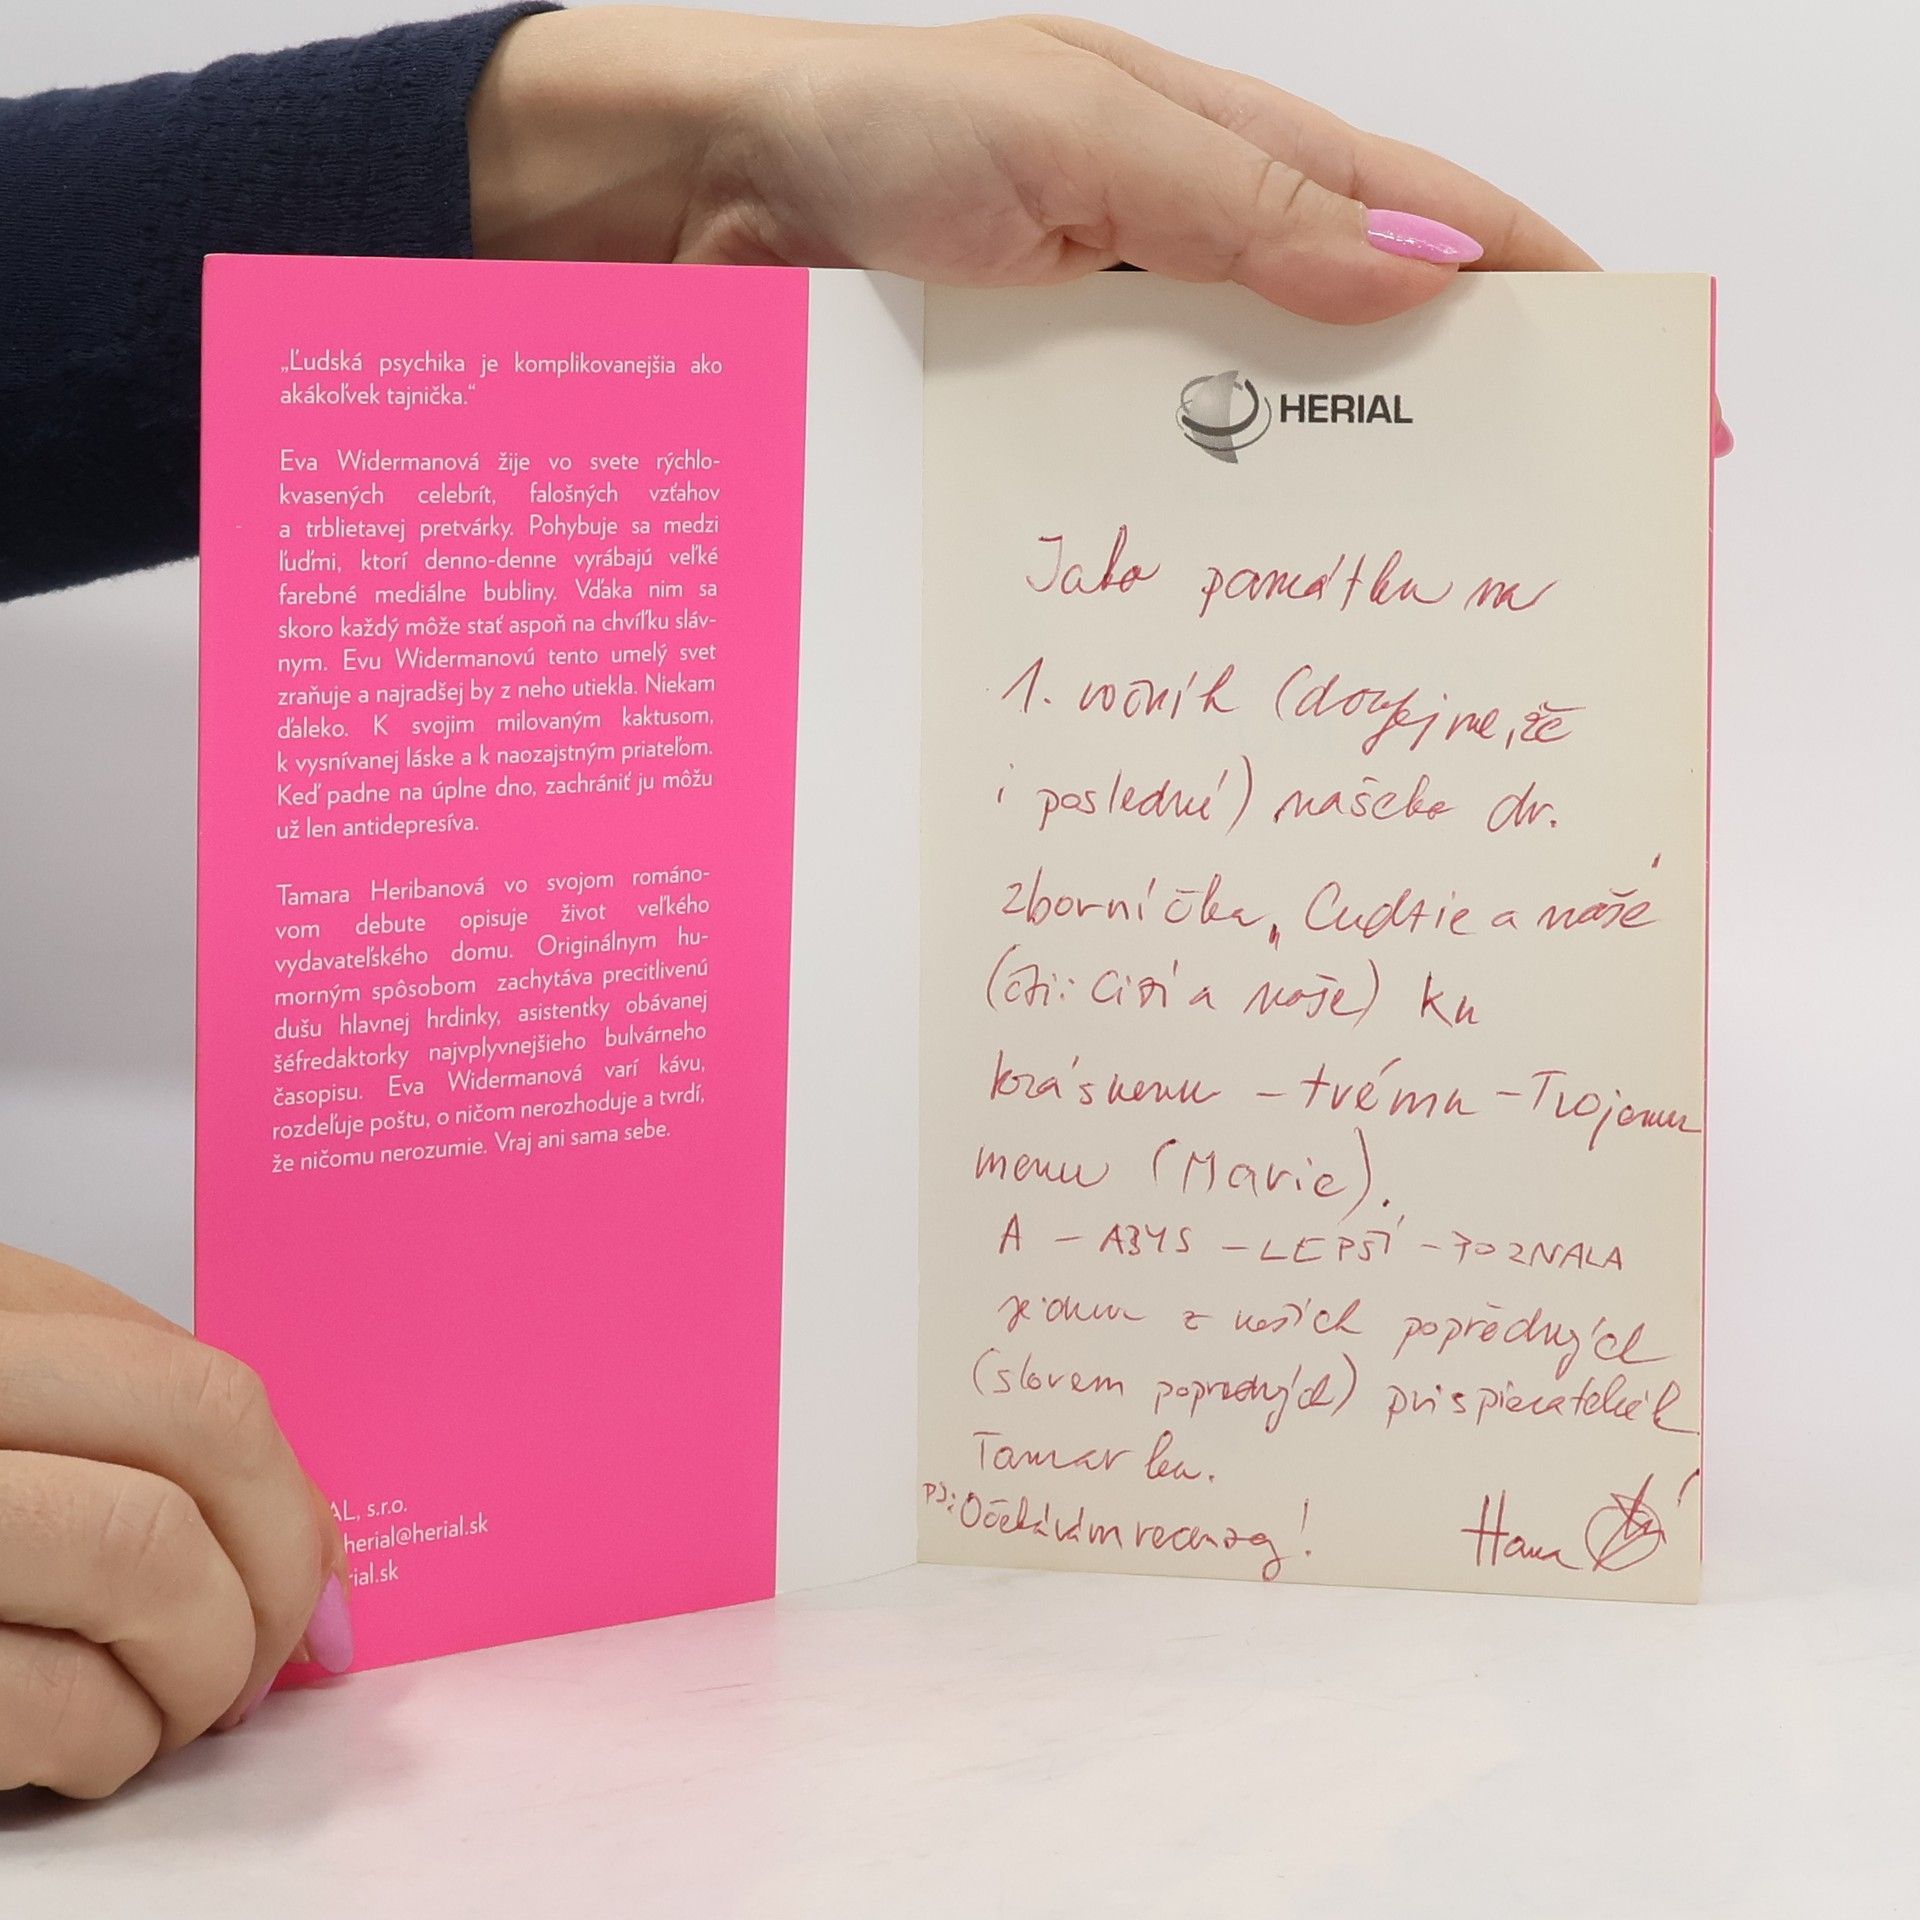 „Ľudská psychika je komplikovanejšia ako
akákoľvek tajnička.“
Eva Widermanová žije vo svete rýchlo-
kvasených celebrít, falošných vzťahov
a trblietavej pretvárky. Pohybuje sa medzi
ľuďmi, ktorí denno-denne vyrábajú veľké
farebné mediálne bubliny. Vďaka nim sa
skoro každý môže stať aspoň na chvíľku sláv-
nym. Evu Widermanovú tento umelý svet
zraňuje a najradšej by z neho utiekla. Niekam
ďaleko. K svojim milovaným kaktusom,
k vysnívanej láske a k naozajstným priateľom.
Keď padne na úplne dno, zachrániť ju môžu
už len antidepresíva.
Tamara Heribanová vo svojom románo-
vom debute opisuje život veľkého
vydavateľského domu. Originálnym hu-
morným spôsobom zachytáva precitlivenú
dušu hlavnej hrdinky, asistentky obávanej
šéfredaktorky najvplyvnejšieho bulvárneho
časopisu. Eva Widermanová varí kávu,
rozdeľuje poštu, o ničom nerozhoduje a tvrdí,
že ničomu nerozumie. Vraj ani sama sebe.
AL, s.r.o.
herial@herial.sk
rial.sk
HERIAL
Jako památku na
1. ročník (doufejme, že
i poslední) našeho dr.
zborníčka „Cudzie a naše
(čti: Cizí a naše) ku
krásnemu – tvému – Tvojemu
menu (Marie).
A – ABYS – LEPŠÍ – POZNALA
jednu z našich popředných
(slovem popredných) prispievateliek
Tamarku.
PS: Očekávám recenzy!
Hana